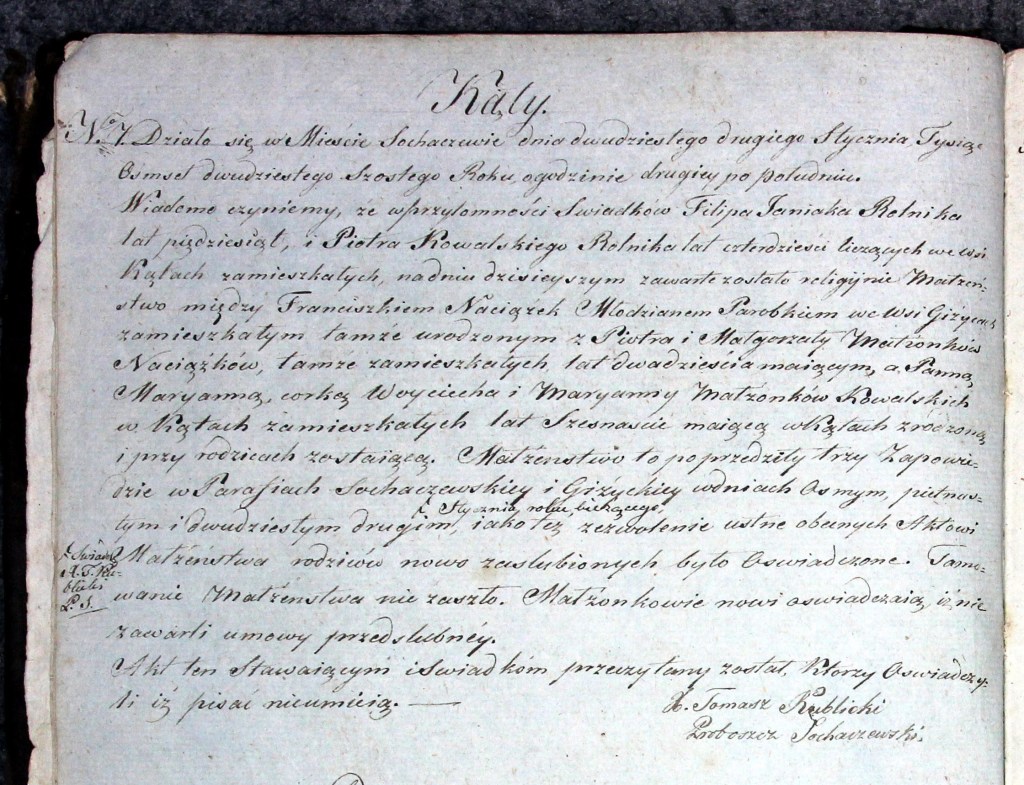 Kąty.
No. 7. Działo się w Mieście Sochaczewie dnia dwudziestego drugiego Stycznia Tysiąc
Osmset dwudziestego Szostego Roku, o godzinie drugiey po południu.
Wiadomo czyniemy, że w przytomności Swiadków Filipa Janiaka Rolnika
lat pięćdziesiąt, i Piotra Kowalskiego Rolnika lat czterdzieści liczących we wsi
Kątach zamieszkałych, na dniu dzisieyszym zawarte zostało religijnie Małżeń-
stwo między Franciszkiem Naciążek Młodzianem Parobkiem we wsi Giżycach
zamieszkałym tamże urodzonym z Piotra i Małgorzaty Małżonków
Naciążków, tamże zamieszkałych, lat dwadzieścia maiącym, a Panną
Maryanną, corką Woyciecha i Maryanny Małżonków Kowalskich
w Kątach zamieszkałych lat Szesnascie maiącą w Kątach zrodzoną
i przy rodzicach zostaiącą. Małżeństwo to poprzedziły trzy Zapowie-
dzie w Parafiach Sochaczewskiey i Giżyckiey w dniach Osmym, piętnas-
Stycznia, roku bieżącego
tym i dwudziestym drugim, iako też zezwolenie ustne obecnych Aktowi
Małżeństwa rodziców nowo zaslubionych było Oswiadczone. Tamo-
wanie Małżeństwa nie zaszło. Małżonkowie nowi oswiadczaią, iż nie
zawarli umowy przedslubnéy.
Akt ten Stawaiącym i Swiadkóm przeczytany został, Ktorzy Oswiadczy-
li iż pisać nieumieią.
X. Tomasz Rublicki
Proboszcz Sochaczewski.